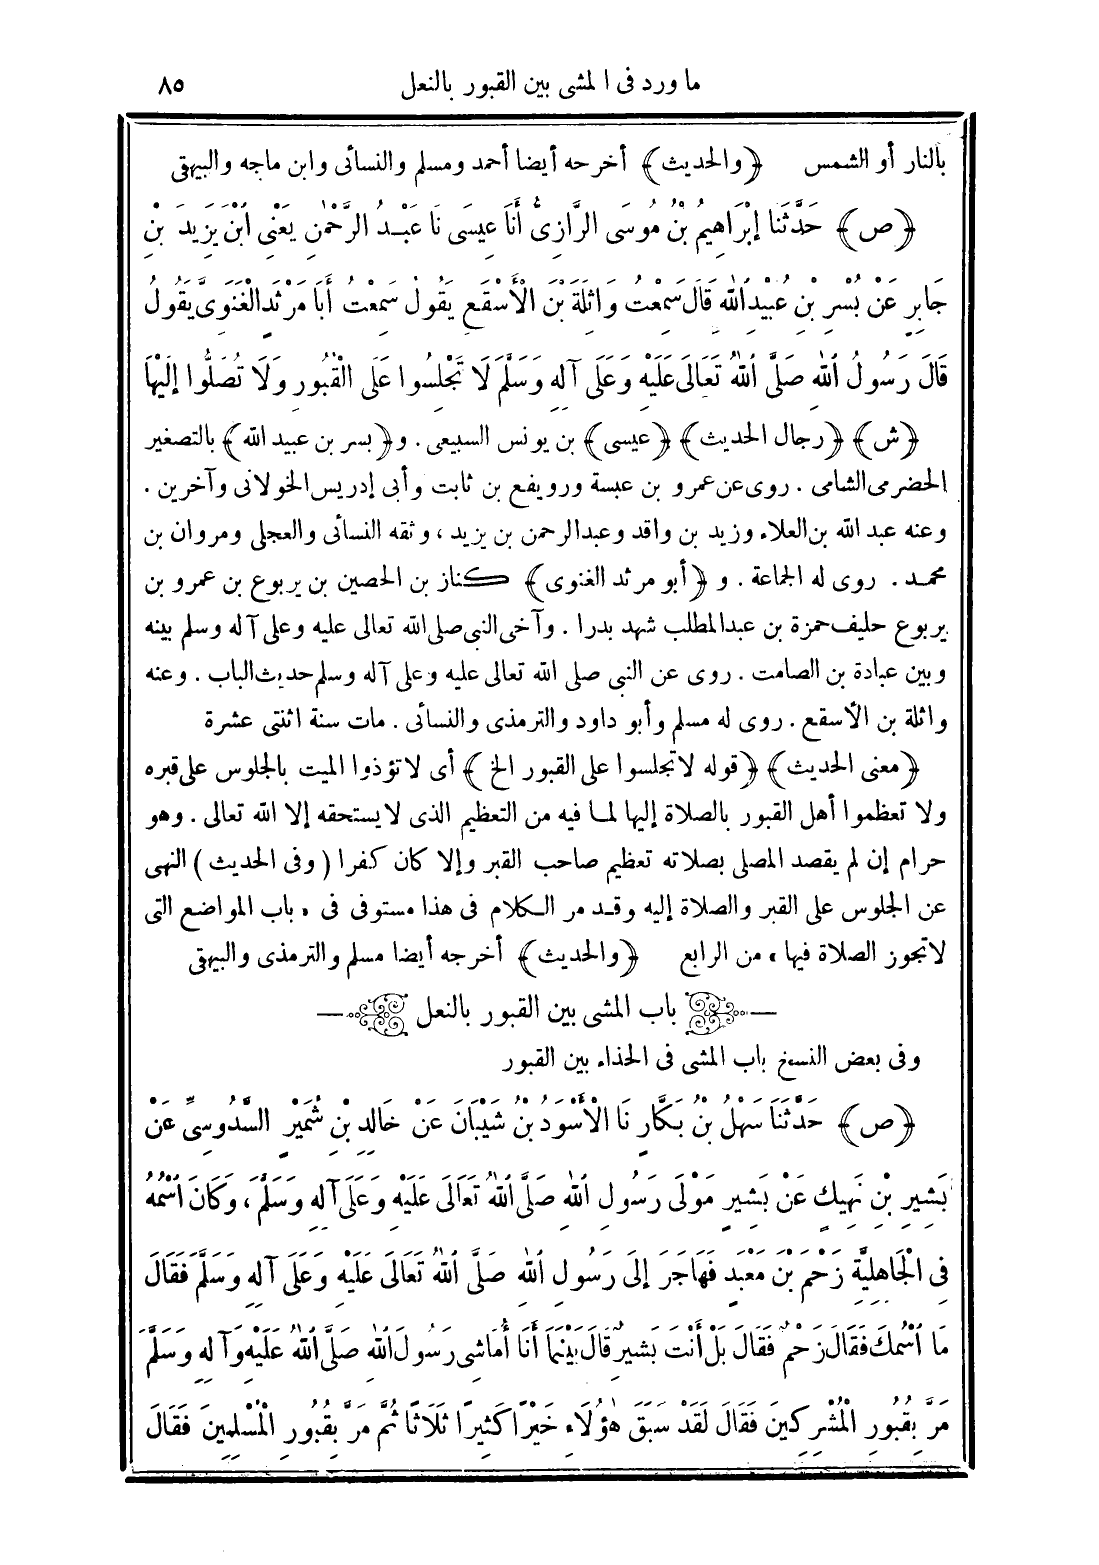 ما ورد فى المشى بين القبور بالنعل ٨٥
بالنار أو الشمس ﴿والحديث﴾ أخرجه أيضا أحمد ومسلم والنسائى وابن ماجه والبيهقى
﴿ص﴾ حَدَّثَنَا إِبْرَاهِيمُ بْنُ مُوسَى الرَّازِىُّ أَنَا عِيسَى نَا عَبْدُ الرَّحْمٰنِ يَعْنِى ابْنَ يَزِيدَ بْنِ
جَابِرٍ عَنْ بُسْرِ بْنِ عُبَيْدِ اللهِ قَالَ سَمِعْتُ وَاثِلَةَ بْنَ الْأَسْقَعِ يَقُولُ سَمِعْتُ أَبَا مَرْثَدٍ الْغَنَوِىَّ يَقُولُ
قَالَ رَسُولُ اللهِ صَلَّى اللهُ تَعَالَى عَلَيْهِ وَعَلَى آلِهِ وَسَلَّمَ لَا تَجْلِسُوا عَلَى الْقُبُورِ وَلَا تُصَلُّوا إِلَيْهَا
﴿ش﴾ ﴿رجال الحديث﴾ ﴿عيسى﴾ بن يونس السبيعى . و﴿بسر بن عبيد الله﴾ بالتصغير
الحضرمى الشامى . روى عن عمرو بن عبسة ورويفع بن ثابت وأبى إدريس الخولانى وآخرين .
وعنه عبد الله بن العلاء وزيد بن واقد وعبد الرحمن بن يزيد ، وثقه النسائى والعجلى ومروان بن
محمد . روى له الجماعة . و ﴿أبو مرثد الغنوى﴾ كناز بن الحصين بن يربوع بن عمرو بن
يربوع حليف حمزة بن عبد المطلب شهد بدرا . وآخى النبى صلى الله تعالى عليه وعلى آله وسلم بينه
وبين عبادة بن الصامت . روى عن النبى صلى الله تعالى عليه وعلى آله وسلم حديث الباب . وعنه
واثلة بن الأسقع . روى له مسلم وأبو داود والترمذى والنسائى . مات سنة اثنتى عشرة
﴿معنى الحديث﴾ ﴿قوله لا تجلسوا على القبور الخ﴾ أى لا تؤذوا الميت بالجلوس على قبره
ولا تعظموا أهل القبور بالصلاة إليها لما فيه من التعظيم الذى لا يستحقه إلا الله تعالى . وهو
حرام إن لم يقصد المصلى بصلاته تعظيم صاحب القبر وإلا كان كفرا (وفى الحديث) النهى
عن الجلوس على القبر والصلاة إليه وقد مر الكلام فى هذا مستوفى فى «باب المواضع التى
لا تجوز الصلاة فيها» من الرابع ﴿والحديث﴾ أخرجه أيضا مسلم والترمذى والبيهقى
باب المشى بين القبور بالنعل
وفى بعض النسخ باب المشى فى الحذاء بين القبور
﴿ص﴾ حَدَّثَنَا سَهْلُ بْنُ بَكَّارٍ نَا الْأَسْوَدُ بْنُ شَيْبَانَ عَنْ خَالِدِ بْنِ سُمَيْرٍ السَّدُوسِىِّ عَنْ
بَشِيرِ بْنِ نَهِيكٍ عَنْ بَشِيرٍ مَوْلَى رَسُولِ اللهِ صَلَّى اللهُ تَعَالَى عَلَيْهِ وَعَلَى آلِهِ وَسَلَّمَ ، وَكَانَ اسْمُهُ
فِى الْجَاهِلِيَّةِ زَحْمَ بْنَ مَعْبَدٍ فَهَاجَرَ إِلَى رَسُولِ اللهِ صَلَّى اللهُ تَعَالَى عَلَيْهِ وَعَلَى آلِهِ وَسَلَّمَ فَقَالَ
مَا اسْمُكَ فَقَالَ زَحْمٌ فَقَالَ بَلْ أَنْتَ بَشِيرٌ قَالَ بَيْنَمَا أَنَا أُمَاشِى رَسُولَ اللهِ صَلَّى اللهُ عَلَيْهِ وَآلِهِ وَسَلَّمَ
مَرَّ بِقُبُورِ الْمُشْرِكِينَ فَقَالَ لَقَدْ سَبَقَ هٰؤُلَاءِ خَيْرًا كَثِيرًا ثَلَاثًا ثُمَّ مَرَّ بِقُبُورِ الْمُسْلِمِينَ فَقَالَ